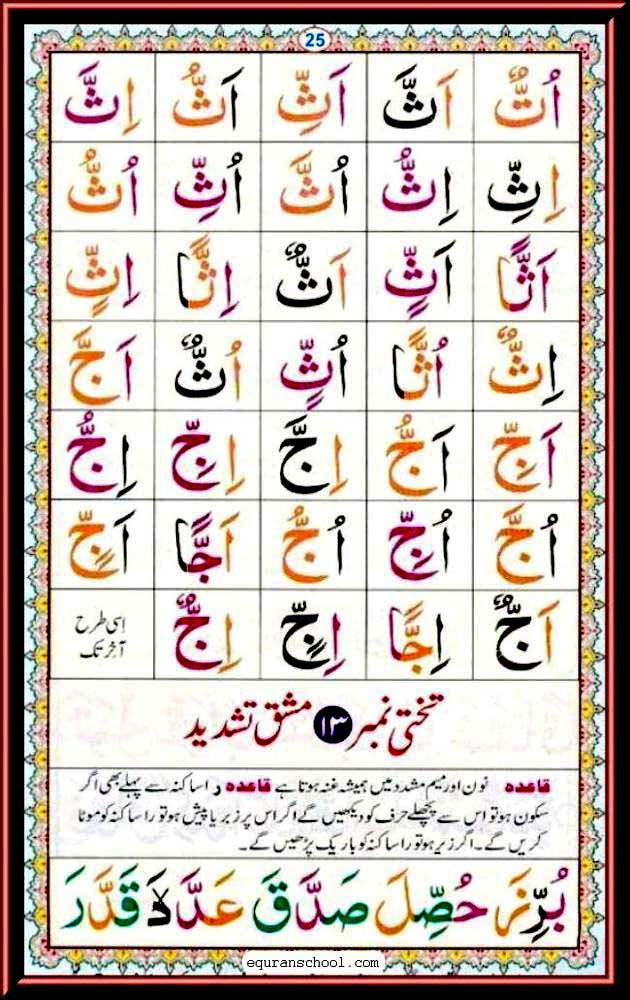 25
اُتٌّ اَثَّ اَثِّ اَثُّ اِثَّ
اِثِّ اِثُّ اُثَّ اُثِّ اُثُّ
اَثًّا اَثٍّ اَثٌّ اِثًّا اِثٍّ
اِثٌّ اُثًّا اُثٍّ اُثٌّ اَجَّ
اَجِّ اَجُّ اِجَّ اِجِّ اِجُّ
اُجَّ اُجِّ اُجُّ اَجًّا اَجٍّ
اَجٌّ اِجًّا اِجٍّ اِجٌّ اسی طرح
آخر تک
تختی نمبر ۱۳ مشق تشدید
قاعدہ نون اور میم مشدد میں ہمیشہ غنہ ہوتا ہے قاعدہ ر اساکنہ سے پہلے بھی اگر
سکون ہو تو اس سے پچھلے حرف کو دیکھیں گے اگر اس پر زبر یا پیش ہو تو را ساکنہ کو موٹا
کریں گے۔ اگر زیر ہو تو را ساکنہ کو باریک پڑھیں گے۔
بُرِّزَ حُصِّلَ صَدَّقَ قَدَّرَ
equranschool.com